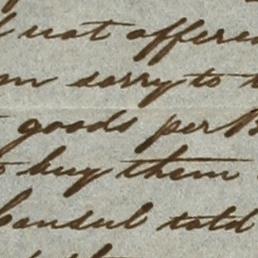 not offered
sorry to
goods per B
buy them
Consul told